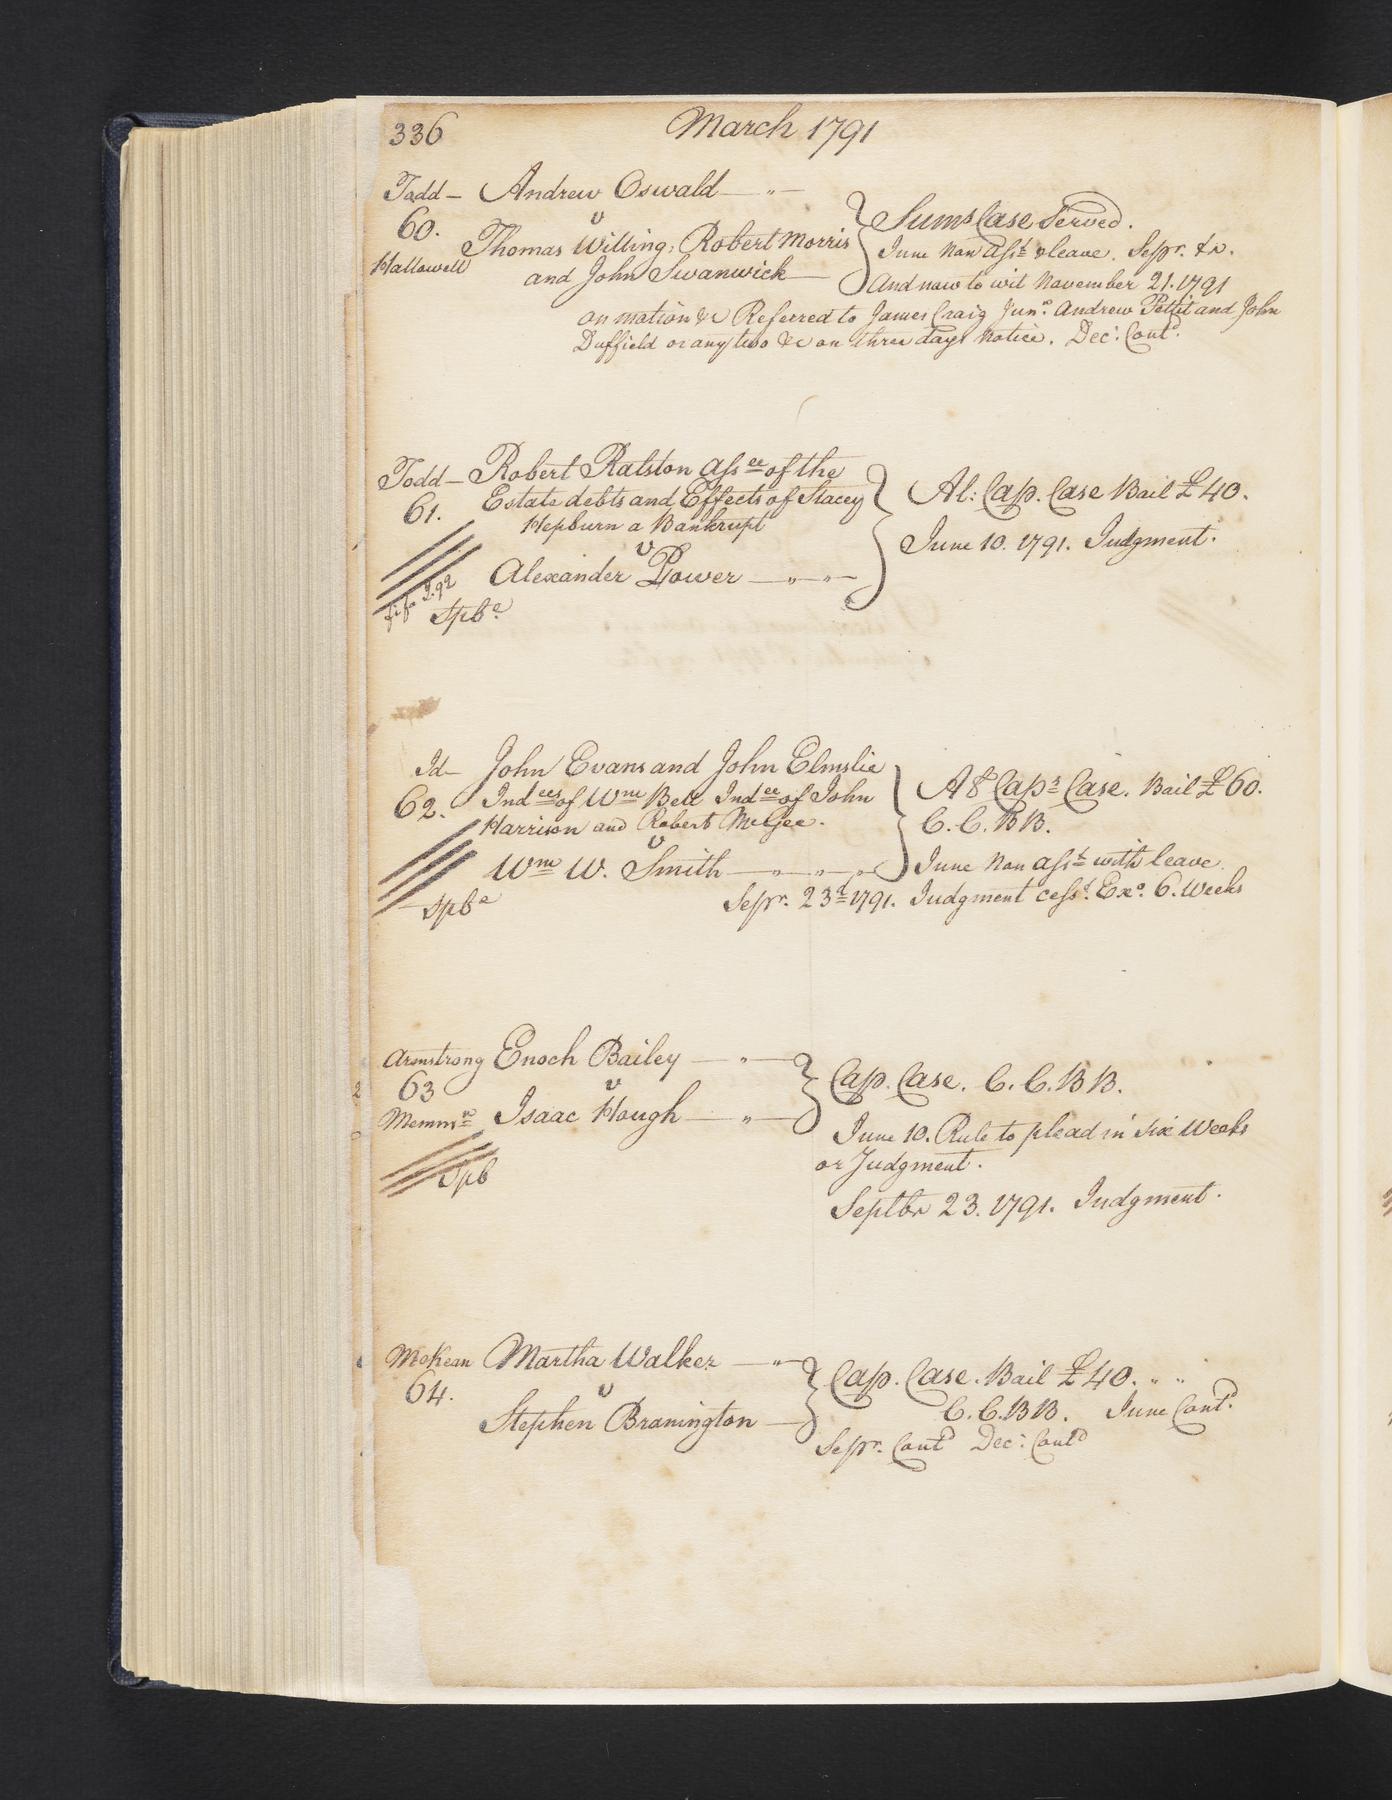 336
March 1791
Todd — Andrew Oswald — " —
60. v
Hallowell Thomas Willing, Robert Morris
and John Swanwick —
Sums Case Served.
June Non Asst & leave. Sepr. &c.
And now to wit November 21. 1791
on motion &c Referred to James Craig Junr. Andrew Pettit and John
Duffield or any two &c on three days Notice. Dec: Contd.
Todd — Robert Ralston Assee of the
61. Estate debts and Effects of Stacey
Hepburn a Bankrupt
v
Alexander Power — " — " —
fi fa
Spba
Al: Cap. Case Bail £40.
June 10. 1791. Judgment.
Id — John Evans and John Elmslie
62. Indees of Wm Bell Indee of John
Harrison and Robert McGee.
v
Wm W. Smith — " — " — "
Spba
Als Caps Case. Bail £60.
C. C. B B.
June Non Asst with leave
Sepr. 23d 1791. Judgment cesst. Exo. 6. Weeks
Armstrong Enoch Bailey — " —
63 v
Memmr Isaac Hough — " —
Spb
Cap. Case. C. C. B B.
June 10. Rule to plead in Six Weeks
or Judgment.
Septbr 23. 1791. Judgment.
McKean Martha Walker — " —
64. v
Stephen Branington —
Cap. Case. Bail £40. " "
C. C. B B. June Contd.
Sepr. Contd Dec: Contd